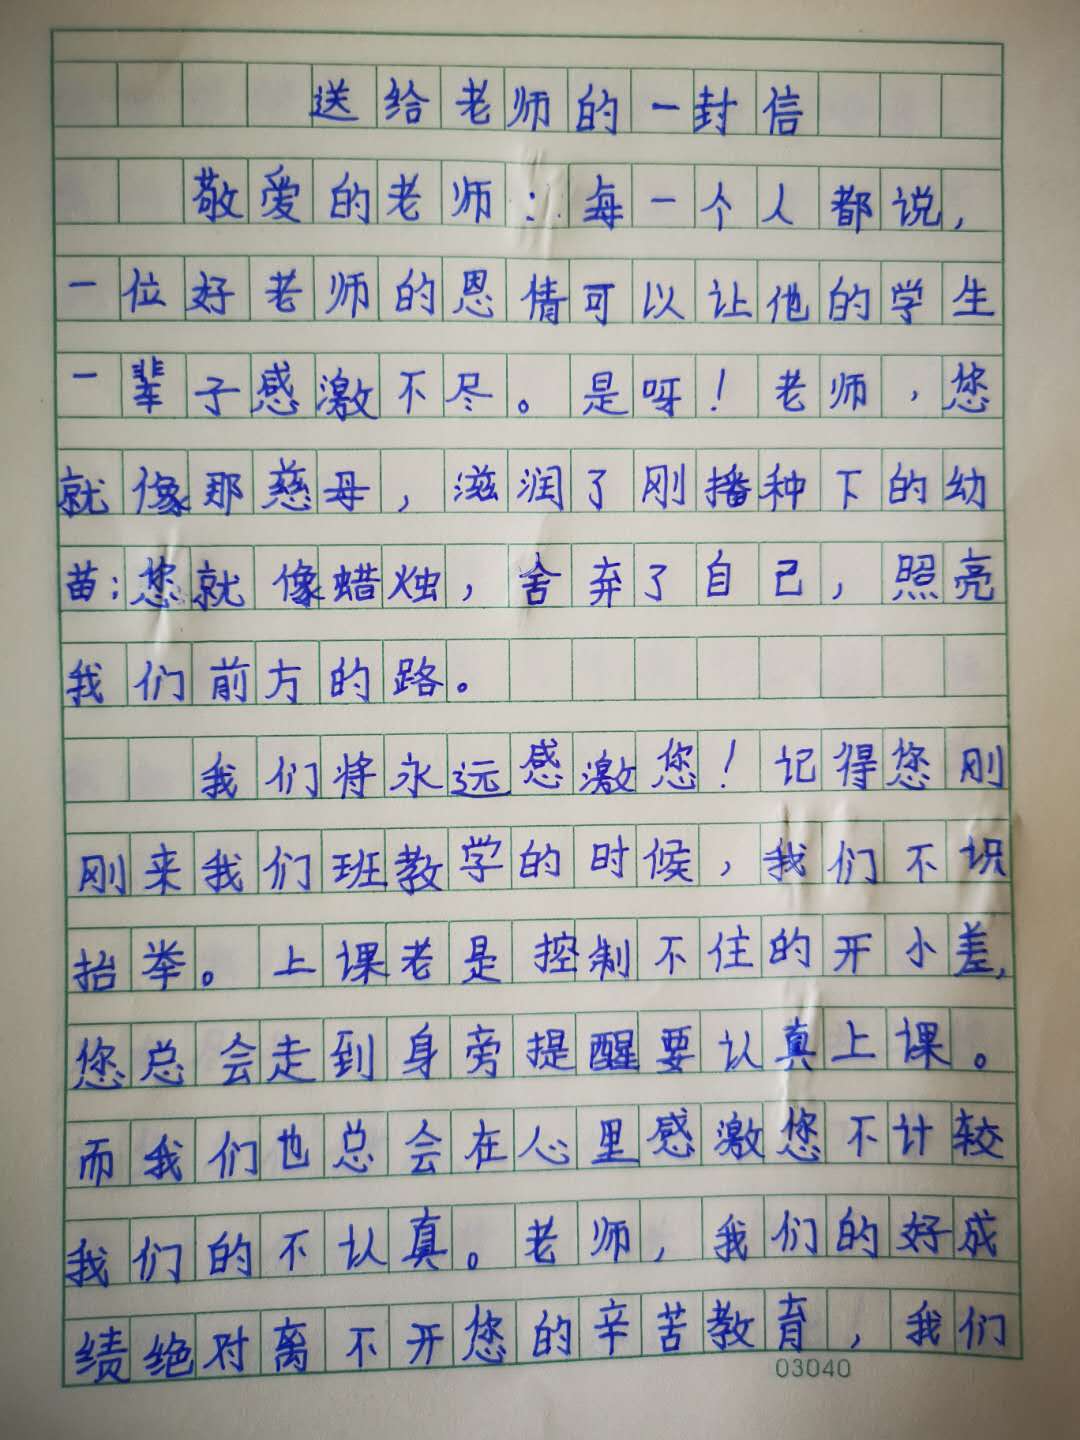 送给老师的一封信
敬爱的老师：每一个人都说，
一位好老师的恩情可以让他的学生
一辈子感激不尽。是呀！老师，您
就像那慈母，滋润了刚播种下的幼
苗；您就像蜡烛，舍弃了自己，照亮
我们前方的路。
我们将永远感激您！记得您刚
刚来我们班教学的时候，我们不识
抬举。上课老是控制不住的开小差，
您总会走到身旁提醒要认真上课。
而我们也总会在心里感激您不计较
我们的不认真。老师，我们的好成
绩绝对离不开您的辛苦教育，我们
03040